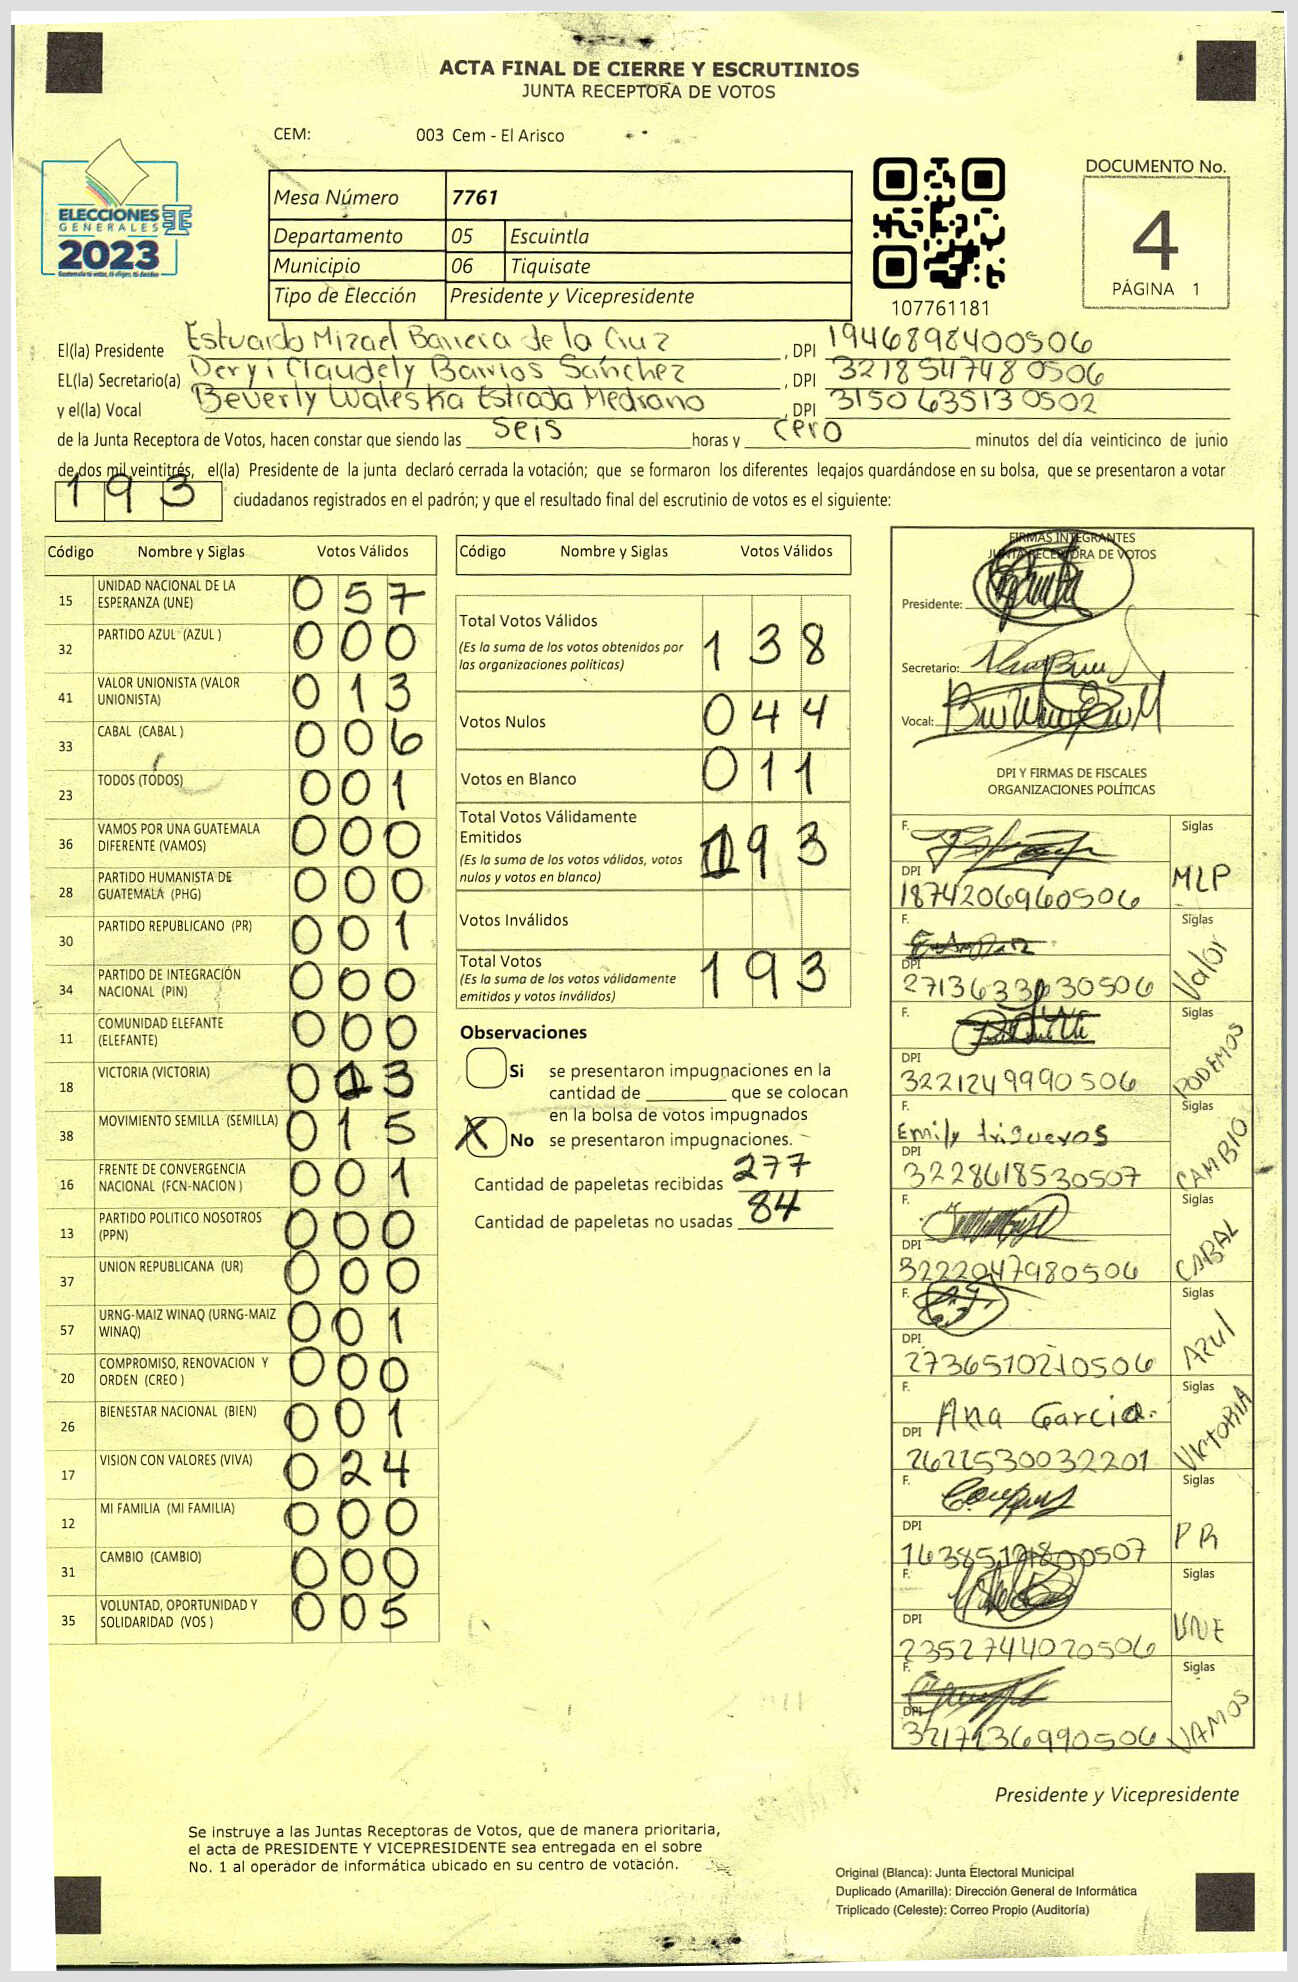 ACTA FINAL DE CIERRE Y ESCRUTINIOS
JUNTA RECEPTORA DE VOTOS
CEM: 003 Cem - El Arisco
ELECCIONES
GENERALES
2023
Mesa Número 7761
Departamento 05 Escuintla
Municipio 06 Tiquisate
Tipo de Elección Presidente y Vicepresidente
107761181
DOCUMENTO No.
4
PÁGINA 1
El(la) Presidente Estuardo Mizael Barrera de la Cruz, DPI 1946898400506
EL(la) Secretario(a) Deryi Claudely Barrios Sánchez, DPI 3218547480506
y el(la) Vocal Beverly Waleska Estrada Medrano, DPI 3150635130502
de la Junta Receptora de Votos, hacen constar que siendo las seis horas y cero minutos del día veinticinco de junio
de dos mil veintitrés, el(la) Presidente de la junta declaró cerrada la votación; que se formaron los diferentes legajos guardándose en su bolsa, que se presentaron a votar
193 ciudadanos registrados en el padrón; y que el resultado final del escrutinio de votos es el siguiente:
Código Nombre y Siglas Votos Válidos
15 UNIDAD NACIONAL DE LA ESPERANZA (UNE) 057
32 PARTIDO AZUL (AZUL ) 000
41 VALOR UNIONISTA (VALOR UNIONISTA) 013
33 CABAL (CABAL ) 006
23 TODOS (TODOS) 001
36 VAMOS POR UNA GUATEMALA DIFERENTE (VAMOS) 000
28 PARTIDO HUMANISTA DE GUATEMALA (PHG) 000
30 PARTIDO REPUBLICANO (PR) 001
34 PARTIDO DE INTEGRACIÓN NACIONAL (PIN) 000
11 COMUNIDAD ELEFANTE (ELEFANTE) 000
18 VICTORIA (VICTORIA) 013
38 MOVIMIENTO SEMILLA (SEMILLA) 015
16 FRENTE DE CONVERGENCIA NACIONAL (FCN-NACION ) 001
13 PARTIDO POLITICO NOSOTROS (PPN) 000
37 UNION REPUBLICANA (UR) 000
57 URNG-MAIZ WINAQ (URNG-MAIZ WINAQ) 001
20 COMPROMISO, RENOVACION Y ORDEN (CREO ) 000
26 BIENESTAR NACIONAL (BIEN) 001
17 VISION CON VALORES (VIVA) 024
12 MI FAMILIA (MI FAMILIA) 000
31 CAMBIO (CAMBIO) 000
35 VOLUNTAD, OPORTUNIDAD Y SOLIDARIDAD (VOS ) 005
Código Nombre y Siglas Votos Válidos
Total Votos Válidos 138
(Es la suma de los votos obtenidos por
las organizaciones políticas)
Votos Nulos 044
Votos en Blanco 011
Total Votos Válidamente
Emitidos 193
(Es la suma de los votos válidos, votos
nulos y votos en blanco)
Votos Inválidos
Total Votos 193
(Es la suma de los votos válidamente
emitidos y votos inválidos)
Observaciones
Si se presentaron impugnaciones en la
cantidad de ________ que se colocan
en la bolsa de votos impugnados
X No se presentaron impugnaciones.
Cantidad de papeletas recibidas 277
Cantidad de papeletas no usadas 84
FIRMAS INTEGRANTES
JUNTA RECEPTORA DE VOTOS
Presidente:
Secretario:
Vocal:
DPI Y FIRMAS DE FISCALES
ORGANIZACIONES POLÍTICAS
F. Siglas
DPI MLP
1874206960506
F. Siglas
DPI Valor
F. Siglas
DPI PODEMOS
3221249990506
F. Emily Trigueros Siglas
DPI CAMBIO
3228618530507
F. Siglas
DPI CABAL
3222047980506
F. Siglas
DPI AZUL
2736510210506
F. Ana Garcia. Siglas
DPI VICTORIA
2622530032201
F. Siglas
DPI PR
F. Siglas
DPI UNE
2352744020506
F. Siglas
DPI VAMOS
3217136990506
Presidente y Vicepresidente
Se instruye a las Juntas Receptoras de Votos, que de manera prioritaria,
el acta de PRESIDENTE Y VICEPRESIDENTE sea entregada en el sobre
No. 1 al operador de informática ubicado en su centro de votación.
Original (Blanca): Junta Electoral Municipal
Duplicado (Amarilla): Dirección General de Informática
Triplicado (Celeste): Correo Propio (Auditoría)